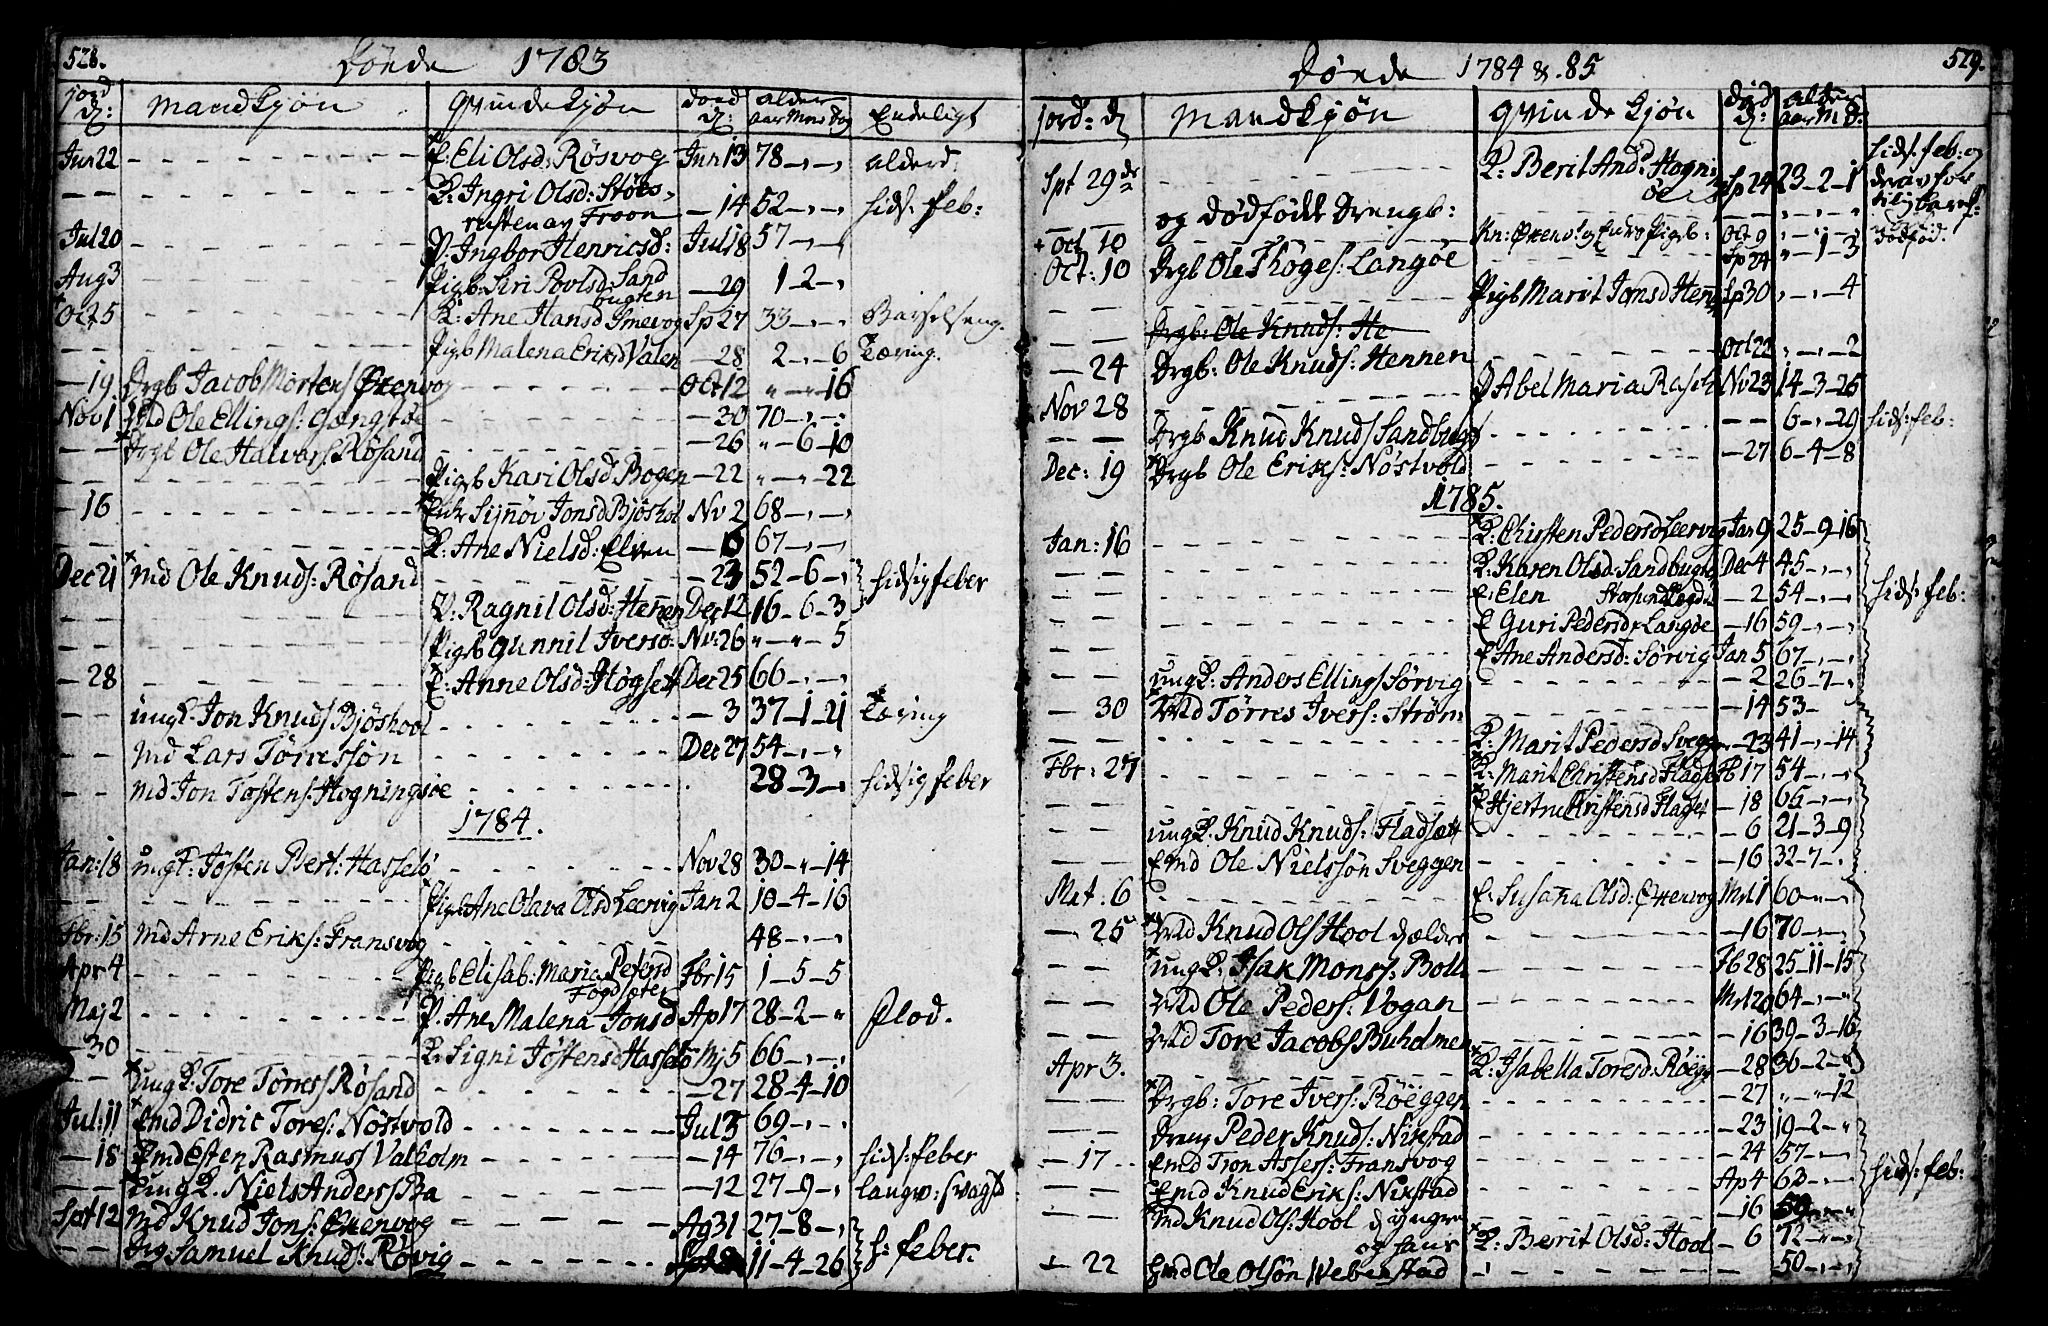 528.
Döde 1783
jord d: Mandkjön qvindekjön död d: alder aar Mnd Dag Endeligt
Jun 22 E. Eli Olsd: Røsvog Jun 13 78 - „ - „ alderd.
K: Ingri Olsd: Støls-
- 14 52 - „ - „ hids: feb:
Jul 20 P. Ingbor Henricsd: Jul 18 57 - „ - „
Aug 3 Pigb: Siri Povlsd: Sand
bugten - 29 1 - 2 - „
Oct 5 K: Ane Hansd Smevog Sp 27 33 - „ - „ Barselseng.
Pigb Malena Ericsd Valen - 28 2 - „ - 6 Tæring.
- 19 Drgb Jacob Mortens Ørenvog Oct 12 „ - „ - 16
Nov 1 Md Ole Ellings: - 30 70 - „ - „
Drgb Ole Halvors: Røsand - 26 „ - 6 - 10
Pigb Kari Olsd Bogen - 22 „ - „ - 22
- 16 Enk Synnøv Jonsd Bjøshol Nv 2 68 - „ - „
K: Ane Nielsd: Elven 67 - „ - „
Dec 21 Md Ole Knuds: Røsand - 23 52 - 6 - „ hidsig feber
P: Ragnil Olsd: Hennen Dec 12 16 - 6 - 3
Pigb Gunnil Iversd: Nv: 26 „ - „ - 5
- 28 E: Anne Olsd: Høgsett Dec 25 66 - „ - „
ungk. Jon Knuds Bjøshool - 3 37 - 1 - 21 Tæring
Md Lars Törressön Dec 27 54 - „ - „
Md Jon Tostens: Hogningsøe 28 - 3 - „ hidsig feber
1784.
Jan: 18 ungk: Jøsten Bert: Hasselø Nov 28 30 - „ - 14
Pigb Ane Olava Olsd Leervig Jan 2 10 - 4 - 16
Fbr: 15 Md Arne Eriks: Fransvog 48 - „ - „
Apr 4 Pigb Elisab: Maria Petersd
Fogdsæter Fbr 15 1 - 5 - 5
Maj 2 P. Ane Malena Jonsd Ap 17 28 - 2 - „ flod.
- 30 K: Signi Jøstensd Hasselø Mj 5 66 - „ - „
ungk: Tore Törres Røsand - 27 28 - 4 - 10
Jul: 11 Emd Didric Tores: Nøstvold Jul 3 69 - „ - „
- 18 Emd Esten Rasmus Valholm - 14 76 - „ - „ hids: feber
ungk. Niels Anders Bæ - 12 27 - 9 - „ langv: svagh
Spt 12 Md Knud Jons: Ørenvog Ag 31 27 - 8 - „
Drg Samuel Knuds: Røvig 11 - 4 - 26 h: feber.
529.
Döde 1784 & 85
jord: d Mandkjön qvindekjön död d: alder aar M D:
Spt 29de K: Berit Ands Hogni
øe Sp 24 23 - 2 - 1 hids: feb: og
derav for
og dødfødt Drengb:
+ Oct 10 Kn: Ørenvogs Pigb: Oct 9 dødfød.
Oct: 10 Drgb Ole Thoges: Langøe Sp 24 „ - 1 - 3
Pigb Marit Jonsd Henn Sp 30 „ - „ - 4
Drgb: Ole Knuds: He
- 24 Drgb: Ole Knuds: Hennen Oct 22 „ - „ - 2
Nov 28 P Abel Maria Rasch Nv 23 14 - 3 - 26
Drgb Knud Knuds Sandbugt 6 - „ - 29 hids: feb:
Dec: 19 Drgb Ole Eriks: Nøstvold - 27 6 - 4 - 8
1785.
Jan: 16 K: Chirsten Pedersd Leervig Jan 9 25 - 9 - 16
K: Karen Olsd: Sandbugte Dec 4 45 - „ - „
E: Elen - 2 54 - „ - „ hids: feb:
E Guri Pedersdr Langøe - 16 59 - „ - „
E Ane Andersd: Sørvig Jan 5 67 - „ - „
ungk: Anders Ellings Sørvig - 2 26 - 7 - „
- 30 Md Törres Ivers: Ström - 14 53 -
K: Marit Pedersd Svegge - 23 41 - „ - 14
Fbr: 27 K: Marit Christensd Flagset Fb 17 54 - „ - „
E Hjertru Christensd Flagset - 18 66 - „ - „
ungk. Knud Knuds: Fladsæt - 6 21 - 3 - 9
Emd Ole Nielssön Sveggen - 16 32 - 7 - „
Mrt. 6 E: Susana Olsd: Ørenvog Mrt 1 60 - „ - „
- 25 Md Knud Ols Hool d. ældre - 16 70 - „ - „
ungk. Isak Monss: Bolli Fb 28 25 - 11 - 15
Md Ole Peders: Vogan Mrt 20 64 - „ - „
Md Tore Jacobs Buholmen - 16 39 - 3 - 16
Apr 3. K: Isabella Toresd: Röegg - 28 36 - 2 - 9
Drgb: Tore Ivers: Röeggen - 27 „ - „ - 12
Dreng Peder Knuds: Nixstad - 23 19 - 2 - „
- 17 Emd Tron Assers: Fransvog - 24 57 - „ - „
Emd Knud Eriks: Nixstad Ap 4 63 - „ - „ hids: feb:
Md Knud Ols: Hool d yngre - 16 50 - „ - „
og hans K: Berit Olsd: Hool - 6 72 - „ - „
- 22 Emd Ole Olsön Weberstad 50 - „ - „